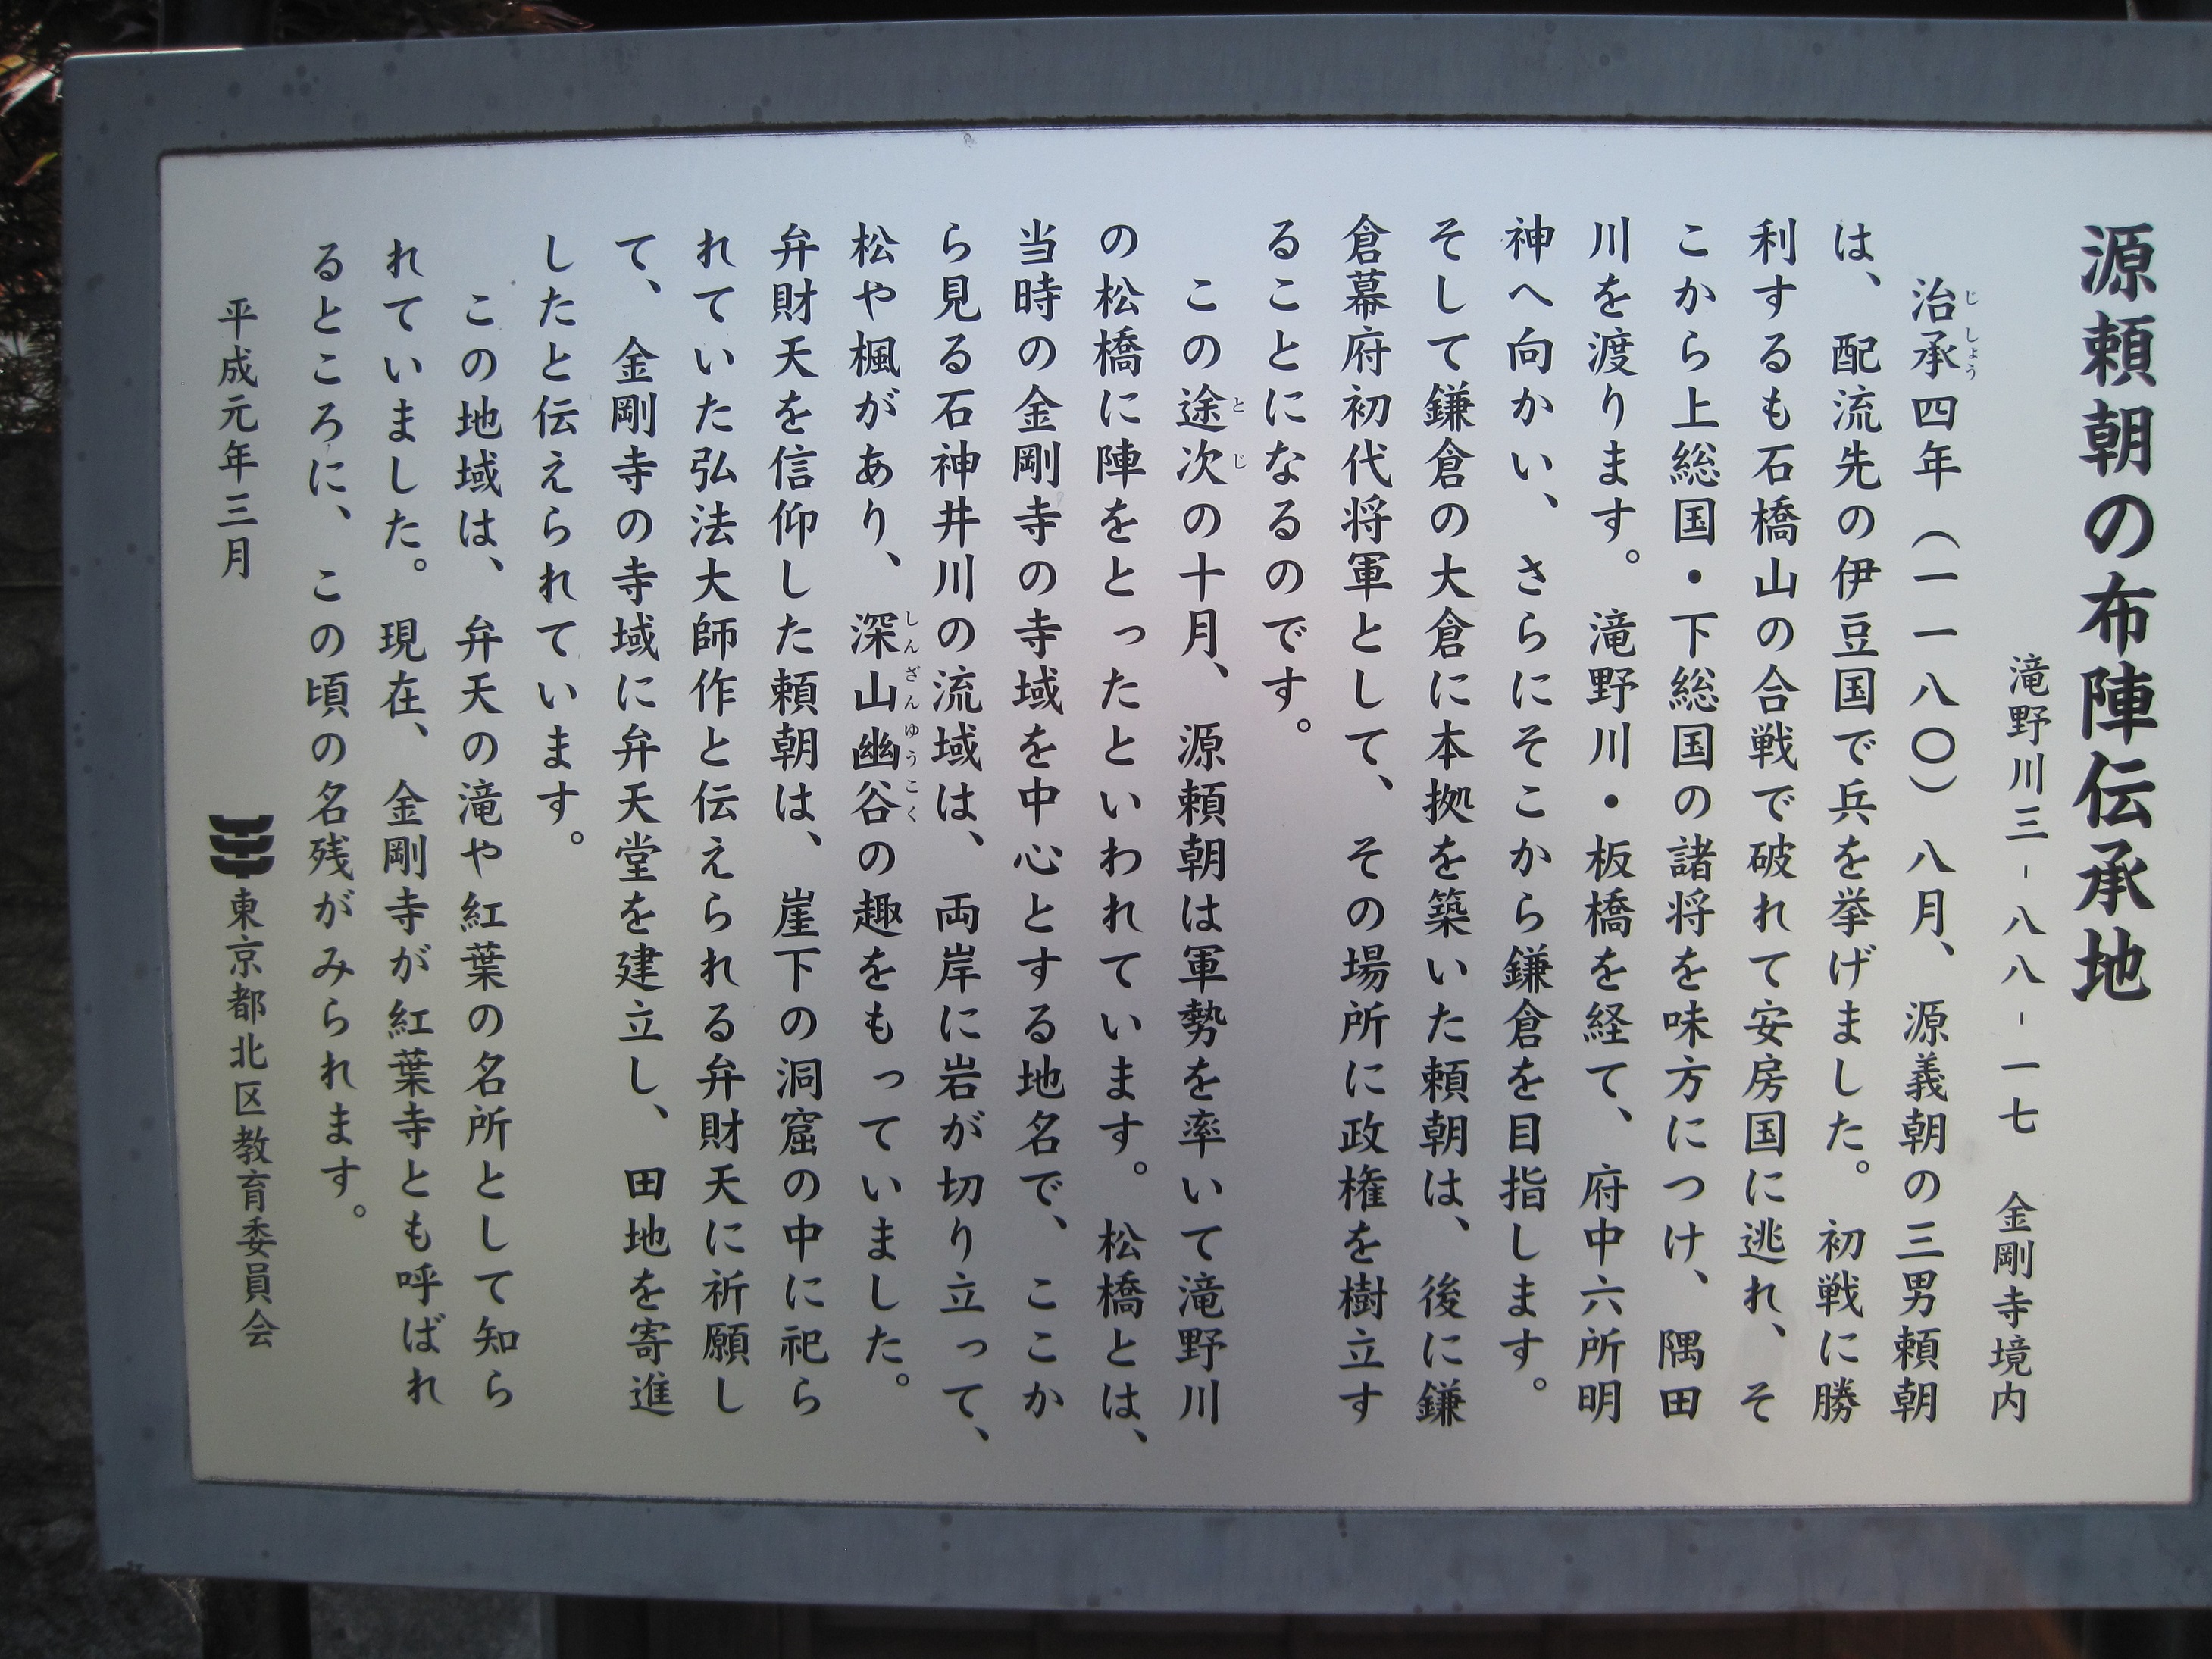 源頼朝の布陣伝承地
滝野川三-八八-一七　金剛寺境内
治承四年（一一八〇）八月、源義朝の三男頼朝
は、配流先の伊豆国で兵を挙げました。初戦に勝
利するも石橋山の合戦で破れて安房国に逃れ、そ
こから上総国・下総国の諸将を味方につけ、隅田
川を渡ります。滝野川・板橋を経て、府中六所明
神へ向かい、さらにそこから鎌倉を目指します。
そして鎌倉の大倉に本拠を築いた頼朝は、後に鎌
倉幕府初代将軍として、その場所に政権を樹立す
ることになるのです。
この途次の十月、源頼朝は軍勢を率いて滝野川
の松橋に陣をとったといわれています。松橋とは、
当時の金剛寺の寺域を中心とする地名で、ここか
ら見る石神井川の流域は、両岸に岩が切り立って、
松や楓があり、深山幽谷の趣をもっていました。
弁財天を信仰した頼朝は、崖下の洞窟の中に祀ら
れていた弘法大師作と伝えられる弁財天に祈願し
て、金剛寺の寺域に弁天堂を建立し、田地を寄進
したと伝えられています。
この地域は、弁天の滝や紅葉の名所として知ら
れていました。現在、金剛寺が紅葉寺とも呼ばれ
るところに、この頃の名残がみられます。
平成元年三月
東京都北区教育委員会